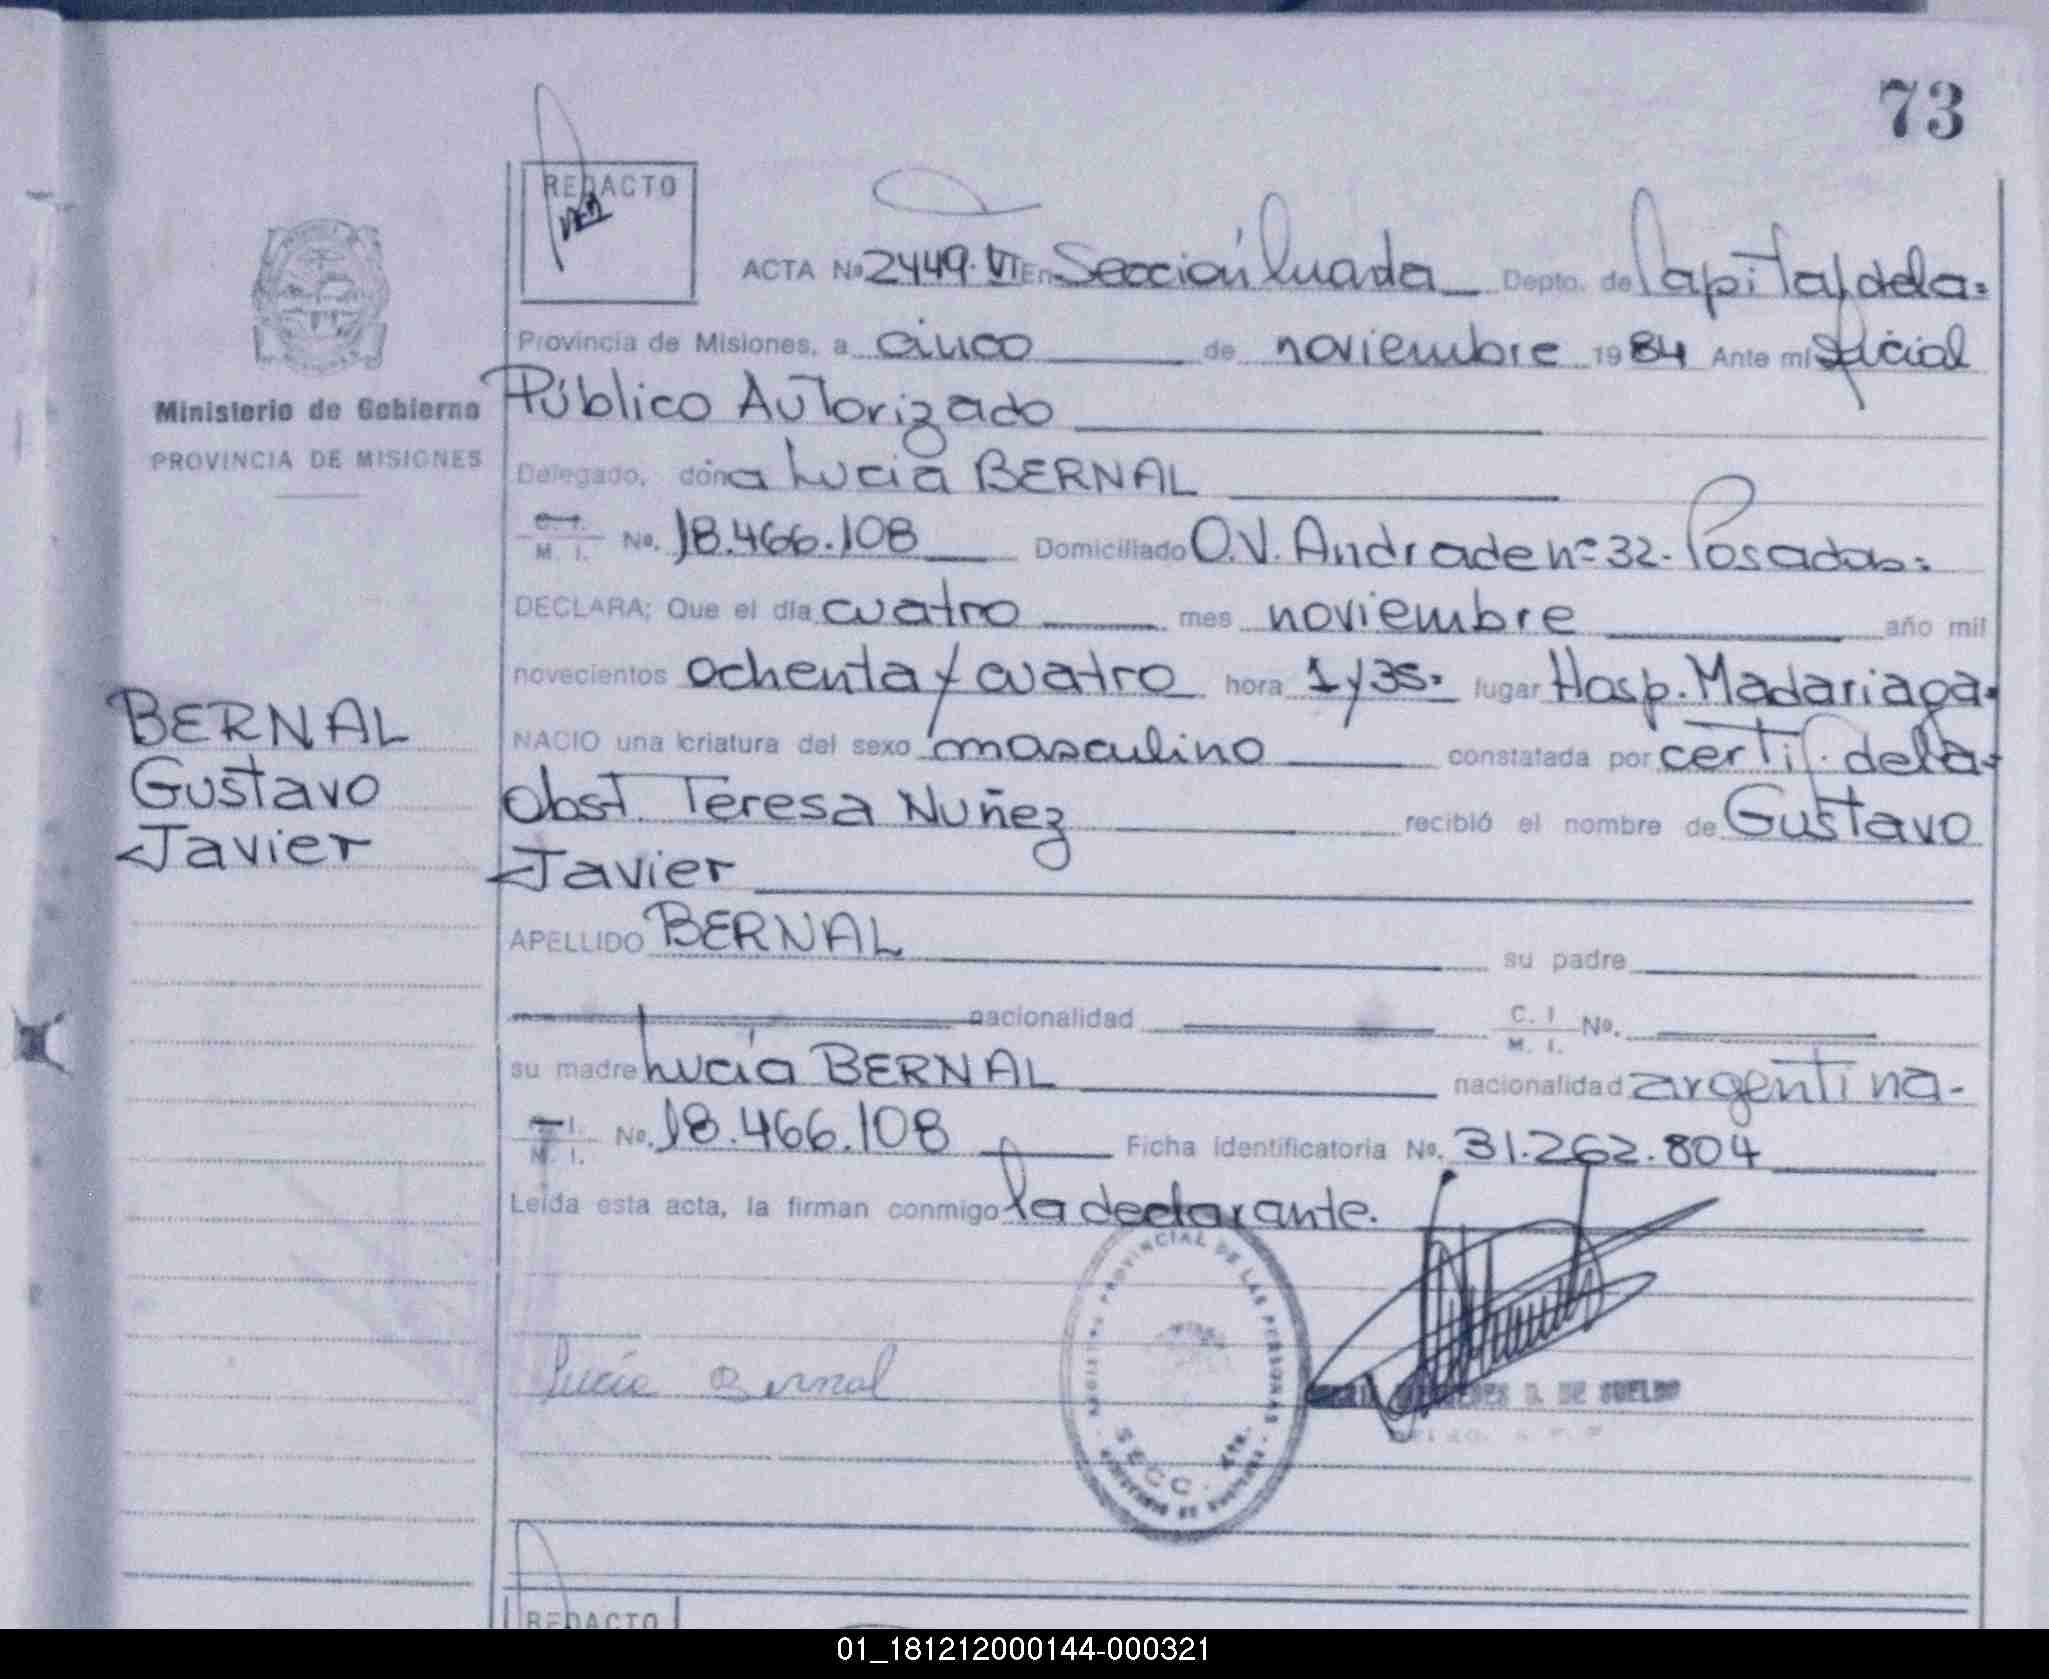 73
REDACTO
ACTA Nº 2449·VI En Sección Cuarta Depto. de Capital dela=
Provincia de Misiones, a cinco de noviembre 1984 Ante mí Oficial
Ministerio de Gobierno
Público Autorizado
PROVINCIA DE MISIONES
Delegado, dóna Lucía BERNAL
C. I.
M. I. No. 18.466.108 Domiciliado O.V. Andrade nº 32. Posadas=
DECLARA; Que el día cuatro mes noviembre año mil
novecientos ochenta y cuatro hora 1 y 35= lugar Hosp. Madariaga=
BERNAL
Gustavo
Javier
NACIO una criatura del sexo masculino constatada por certif. dela=
Obst. Teresa Nuñez recibió el nombre de Gustavo
Javier
APELLIDO BERNAL su padre
nacionalidad C. I M. I. No.
su madre Lucía BERNAL nacionalidad argentina-
M. I. No. 18.466.108 Ficha identificatoria No. 31.262.804
Leída esta acta, la firman conmigo la declarante.
REGISTRO PROVINCIAL DE LAS PERSONAS
SECC. 4ta.
Lucía Bernal
D. DE SUELDO
REDACTO
01_181212000144-000321